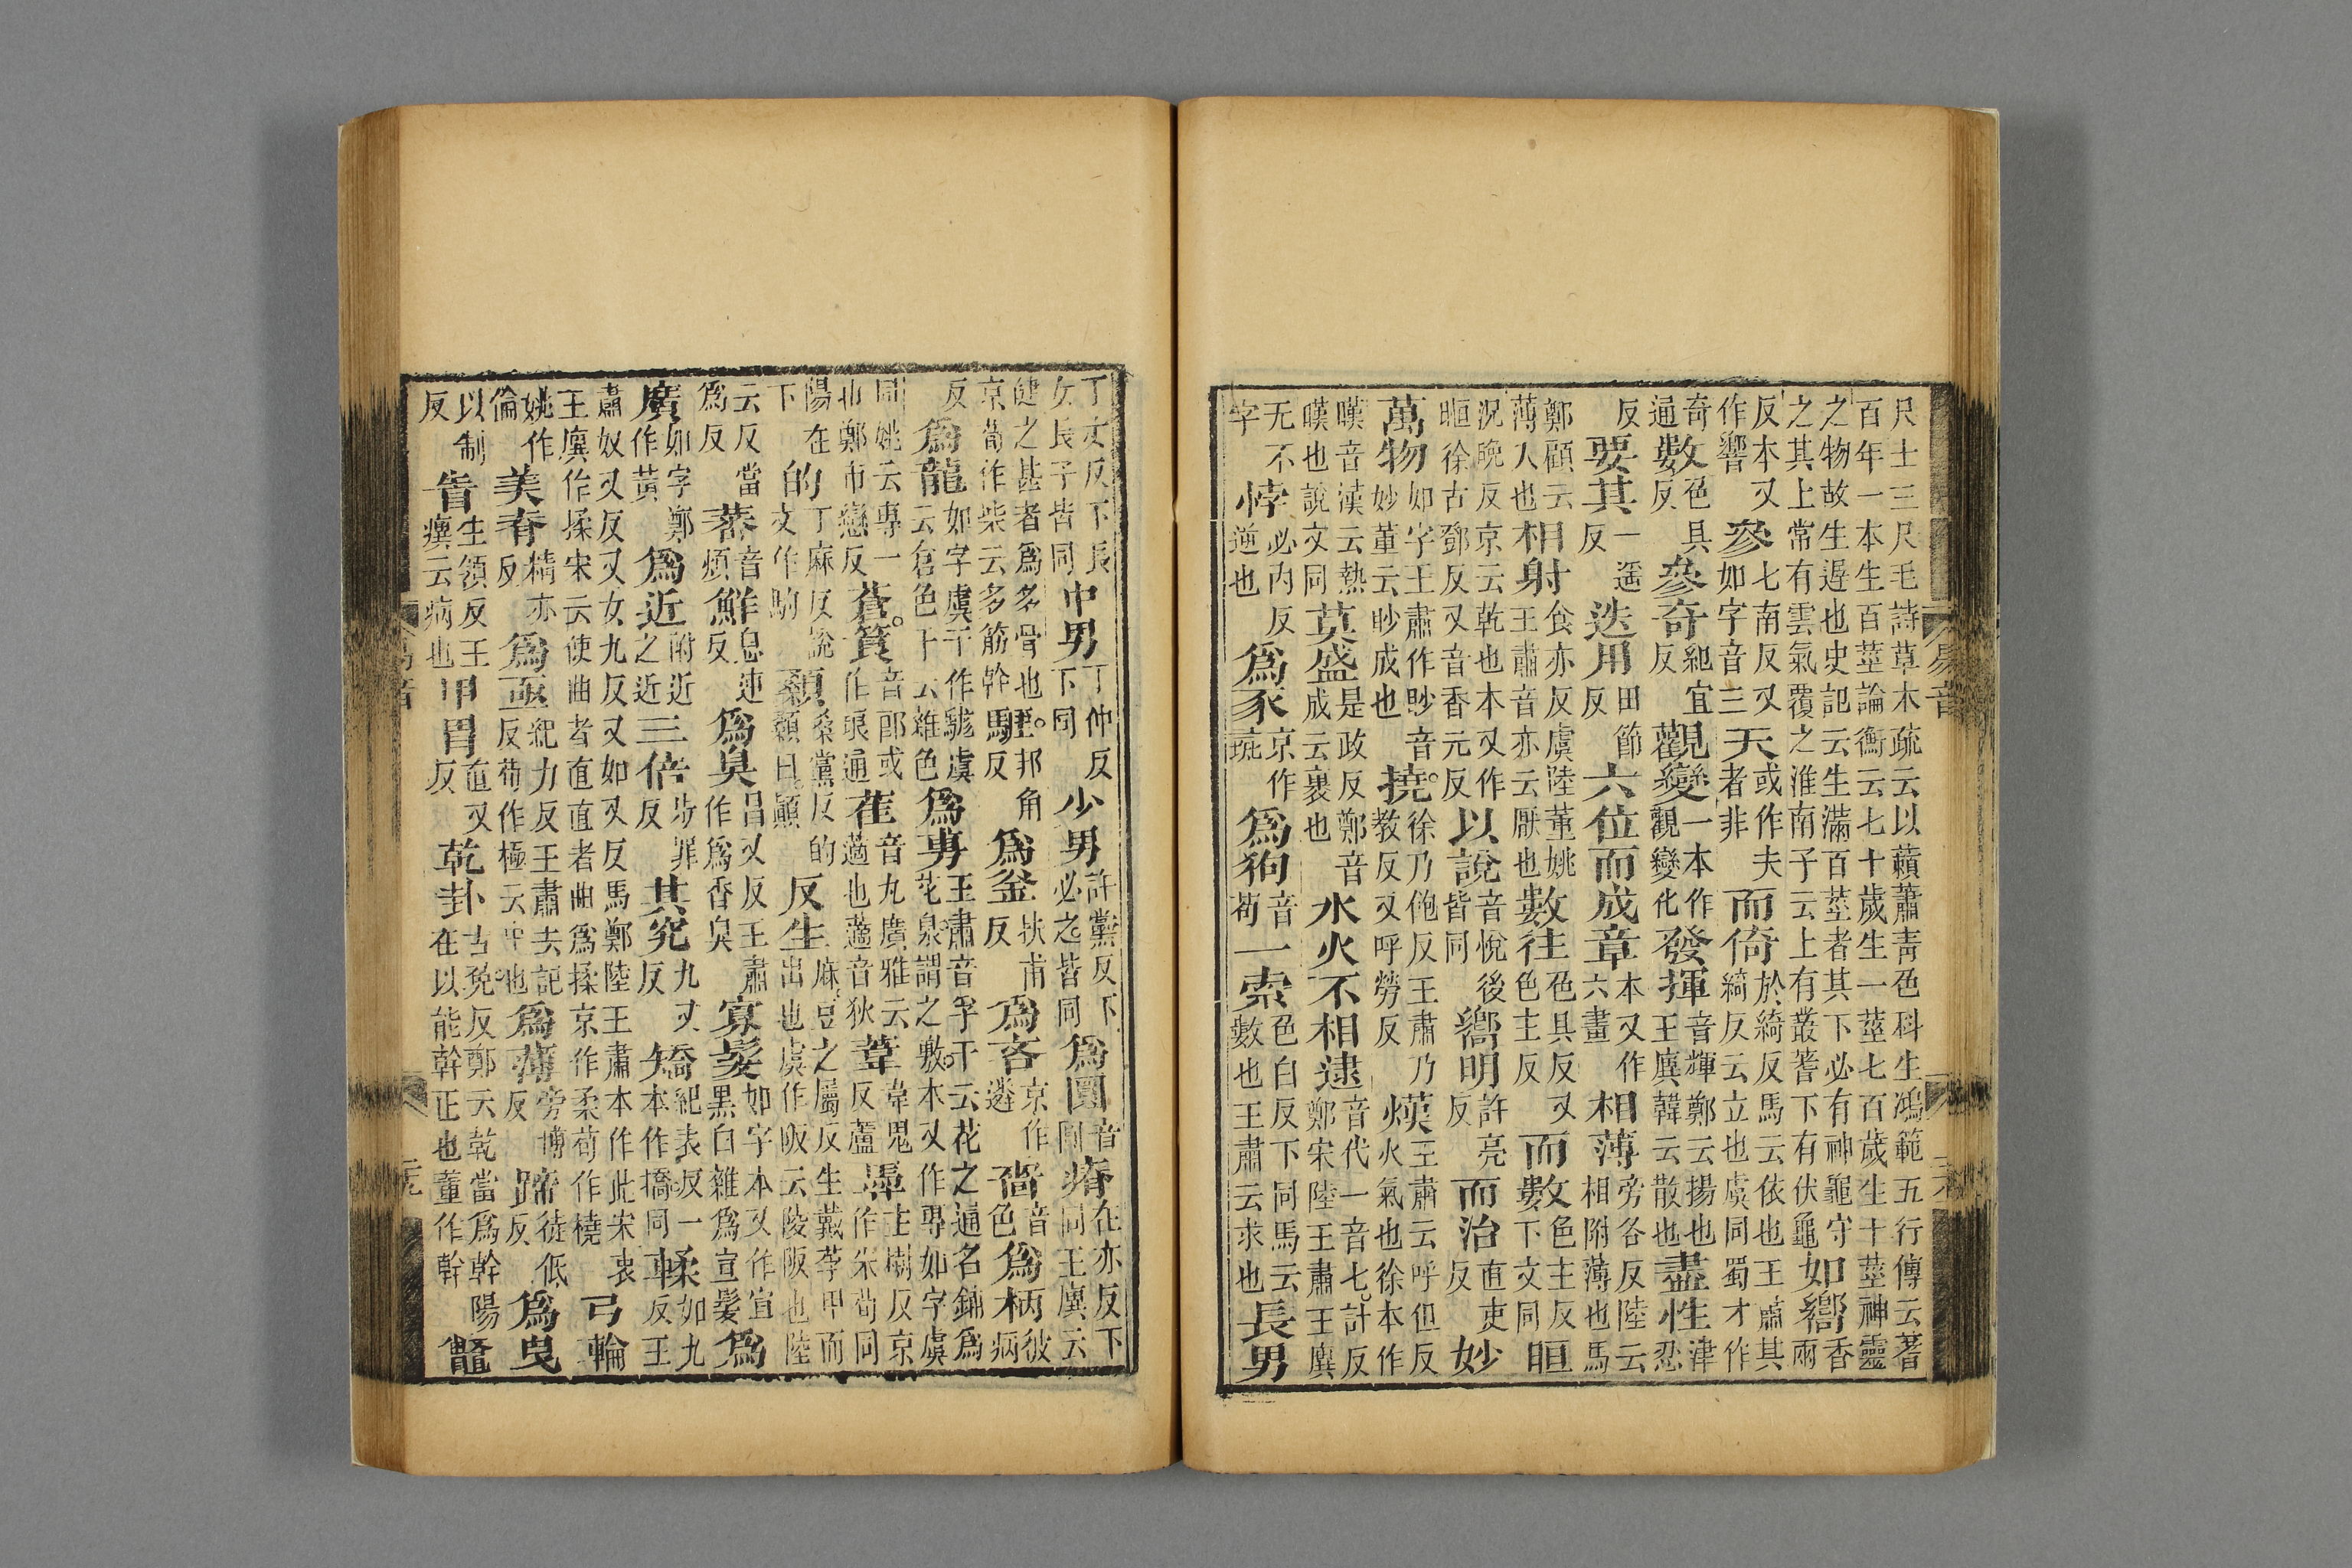 尺士三尺毛詩草木疏云以藾蕭靑色科生鴻範五行傳云蓍百年一本生百莖論衡云七十歲生一莖七百歲生十莖神靈
之物故生遲也史記云生滿百莖者其下必有神龜守之其上常有雲氣覆之淮南子云上有叢蓍下有伏龜如嚮香兩
反本又作響參七南反又如字音三天或作夫者非而倚於綺反馬云依也王肅其綺反云立也虞同蜀才作
奇通數色具反參奇紀宜反觀變一本作觀變化發揮音輝鄭云揚也王廙韓云散也盡性津忍
反要其一遥反迭用田節反六位而成章本又作六畫相薄旁各反陸云相附薄也馬
鄭顧云薄入也相射食亦反虞陸董姚王肅音亦云厭也數往色具反又色主反而數色主反下文同晅
況晚反京云乾也本又作晅徐古鄧反又音香元反以說音悅後皆同嚮明許亮反而治直吏反妙
萬物如字王肅作眇音妙董云眇成也撓徐乃飽反王肅乃教反又呼勞反熯王肅云呼但反火氣也徐本作
暵音漢云熱暵也說文同莫盛是政反鄭音成云裹也水火不相逮音代一音七計反鄭宋陸王肅王廙
无不字悖必內反逆也爲豕京作豨爲狗音苟一索色白反下同馬云數也王肅云求也長男
丁丈反下長女長子皆同中男丁仲反下同少男許黨反下必之皆同爲圜音圓瘠在亦反下同王廙云
健之甚者爲多骨也京荀作柴云多筋幹駁邦角反爲釜扶甫反爲吝京作遴嗇音色爲柄彼病
反爲龍如字虞干作駹虞云倉色干云雜色爲旉王肅音孚干云花之通名鋪爲花皃謂之敷本又作專如字虞
同姚云專一也鄭市戀反蒼筤音郎或作琅通萑音丸廣雅云藡也藡音狄葦韋鬼反蘆馵主樹反京作朱荀同
陽在下的丁麻反說文作馰顙桑黨反的顙白顛反生麻豆之屬反生戴莩甲而出也虞作阪云陵阪也陸
云反當爲反蕃音煩鮮息連反爲臭昌又反王肅作爲香臭寡髮如字本又作宣黑白雜爲宣髮爲
廣如字鄭作黃爲近附近之近三倍步罪反其究九又反矯紀表反一本作撟同輮如九反王
肅奴又反又女九反又如又反馬鄭陸王肅本作此宋衷王廙作揉宋云使曲者直直者曲爲揉京作柔荀作橈弓輪
姚作倫美脊精亦反爲亟紀力反王肅去記反荀作極云中也爲薄旁博反蹄徒低反爲曳
以制反眚生領反王廙云病也甲冑直又反乾卦古免反鄭云乾當爲幹陽在以能幹正也董作幹鼈